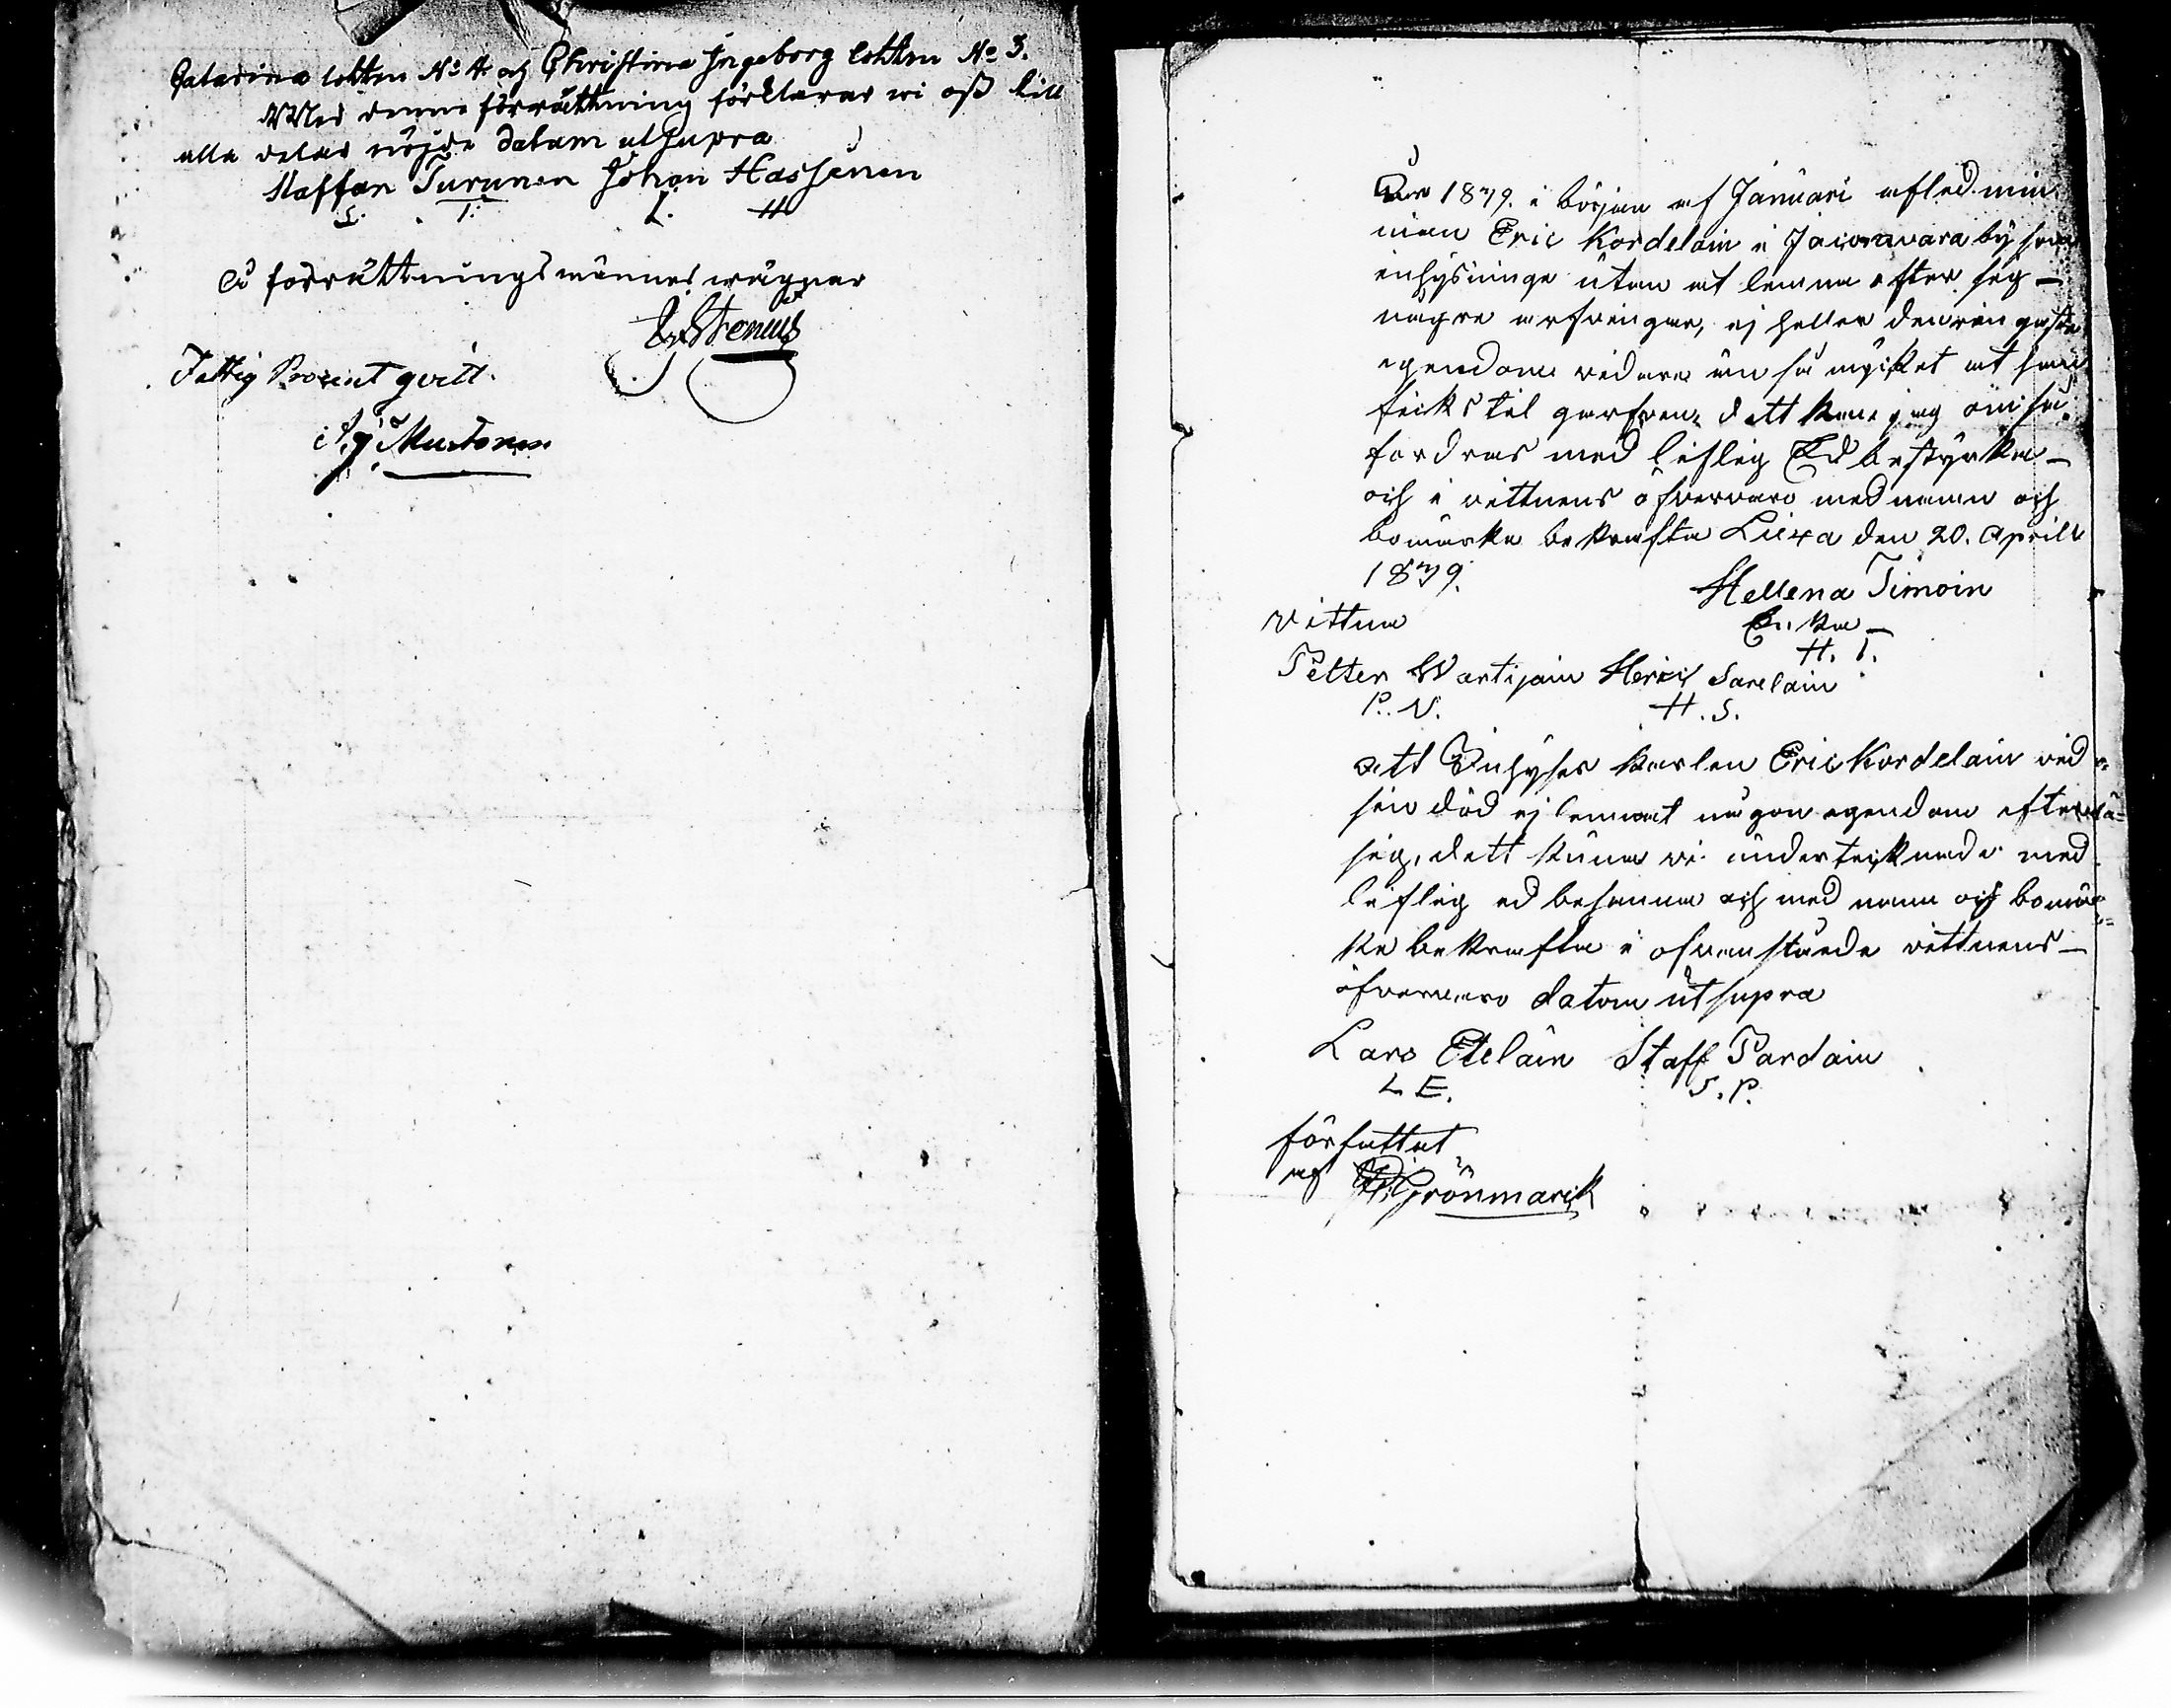 Catarina lotten No 4. och Christina Ingeborg lotten No 3.
Med denne förrättning förklarar wi oss till
alla delar nöjde datum utsupra
Staffan Turunen Johan Hassinen
S. T. I. H
På förrättningsmännes wägnar
Fattig Procent qvitt.
Mustonen
År 1879. i början af Januari afled min
man Eric Kordelain i Jaconwara by som
inhysinge utan at lemna efter sig
några arfwingar, ej heller den ringaste
egendom widare än så myket at han
ficks til grafwen, dett kan jag om så
fordras med liflig Ed bestyrka
och i wittnens öfwerwaro med namn och
bomärke bekrafta Lixa den 20. Aprill
1879.
Hellena Timoin
Enka
H. T.
Vittna
Petter Wartijain Henrich Sarelain
P. V. H. S.
att Inhyses karlen Eric Kordelain wid
sin död ej lemnat någon egendom efter
sig, dett kunna wi undertecknade med
liflig ed besanna och med namn och bomär
ke bekrafta i ofwanstående wittnens
öfwerwaro datum utsupra
Lars Eteläin Staff Pardain
L E. S. P.
författat
af Grönmarck